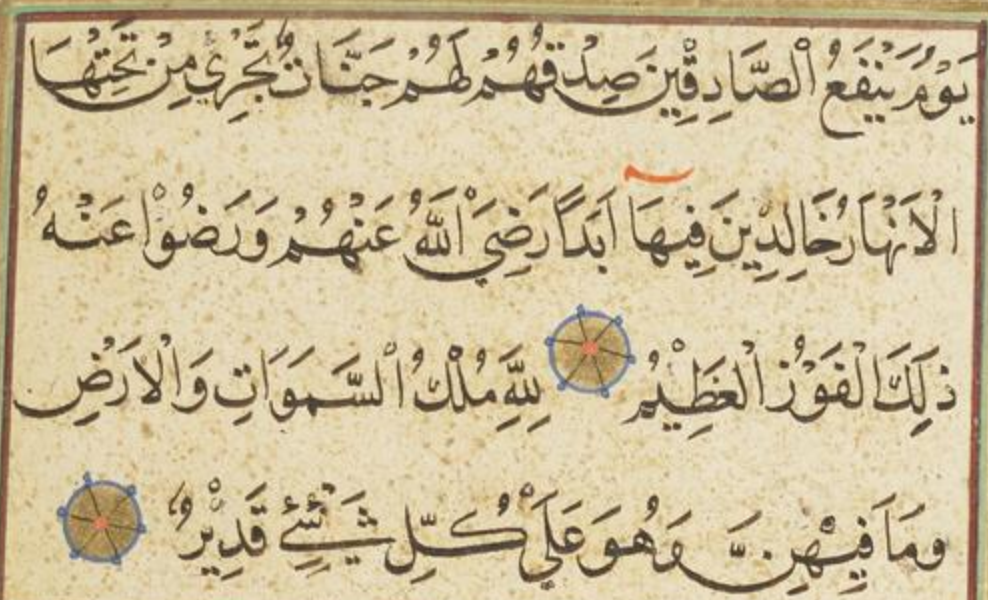 يَوْمُ يَنْفَعُ الصَّادِقِينَ صِدْقُهُمْ لَهُمْ جَنَّاتٌ تَجْرِي مِنْ تَحْتِهَا
الْاَنْهَارُ خَالِدِينَ فِيهَا اَبَدًا رَضِيَ اللّٰهُ عَنْهُمْ وَرَضُوْا عَنْهُ
ذٰلِكَ الْفَوْزُ الْعَظِيْمُ لِلّٰهِ مُلْكُ السَّمٰوَاتِ وَالْاَرْضِ
وَمَا فِيْهِنَّ وَهُوَ عَلٰي كُلِّ شَيْءٍ قَدِيْرٌ